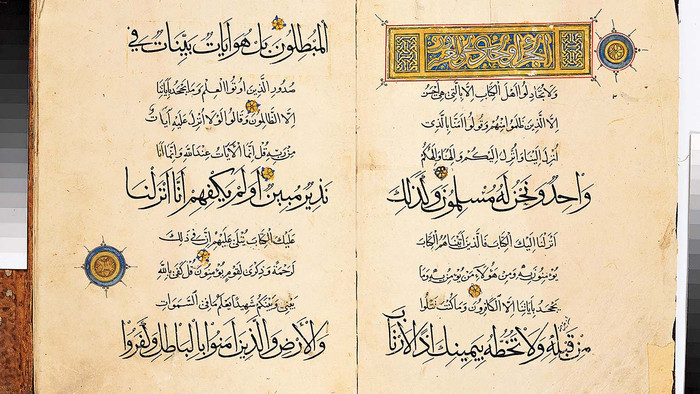 ولا تجادلوا اهل الكتاب الا بالتي هي احسن
الا الذين ظلموا منهم وقولوا امنا بالذي
انزل الينا وانزل اليكم والهنا والهكم
واحد ونحن له مسلمون وكذلك
انزلنا اليك الكتاب فالذين اتيناهم الكتاب
يومنون به ومن هولاء من يومن به وما
يجحد باياتنا الا الكافرون وما كنت تتلوا
من قبله ولا تخطه بيمينك اذا لارتاب
المبطلون بل هو ايات بينات في
صدور الذين اوتوا العلم وما يجحد باياتنا
الا الظالمون وقالوا لولا انزل عليه ايات
من ربه قل انما الايات عند الله وانما انا
نذير مبين اولم يكفهم انا انزلنا
عليك الكتاب يتلى عليهم ان في ذلك
لرحمة وذكرى لقوم يومنون قل كفى بالله
بيني وبينكم شهيدا يعلم ما في السموات
والارض والذين امنوا بالباطل وكفروا